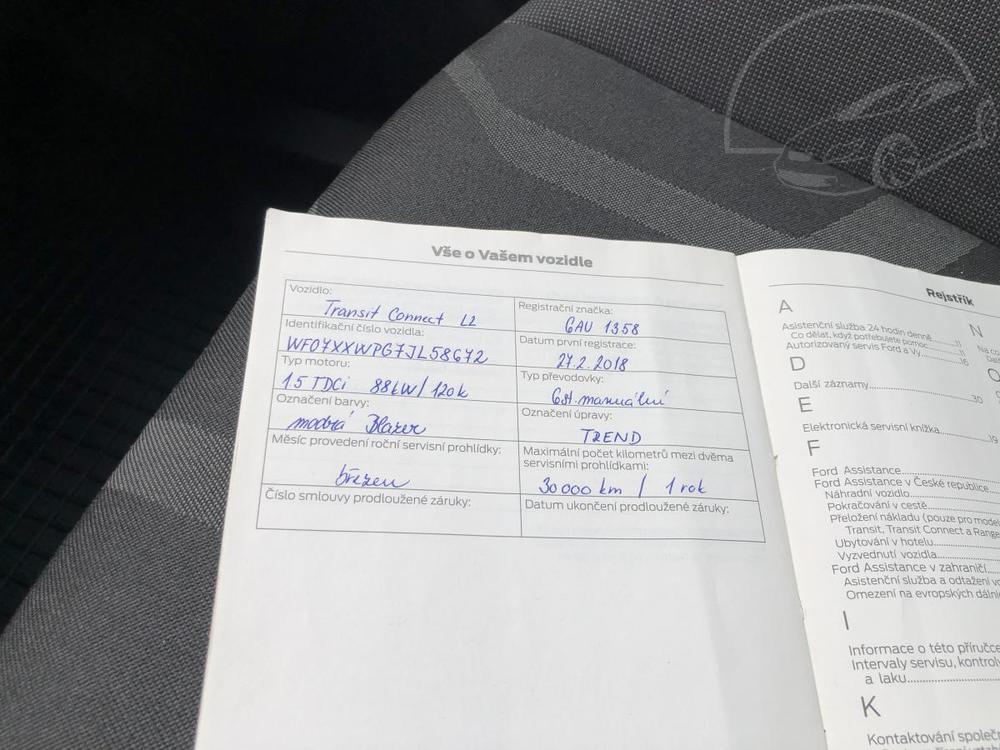 Vše o Vašem vozidle
Vozidlo:
Transit Connect L2
Registrační značka:
6AU 1358
Identifikační číslo vozidla:
WF07XXWPG7JL58672
Datum první registrace:
27.2.2018
Typ motoru:
1.5 TDCi 88kW/120k
Typ převodovky:
6st. manuální
Označení barvy:
modrá Blazer
Označení úpravy:
TREND
Měsíc provedení roční servisní prohlídky:
březen
Maximální počet kilometrů mezi dvěma
servisními prohlídkami:
30 000 km / 1 rok
Číslo smlouvy prodloužené záruky:
Datum ukončení prodloužené záruky:
Rejstřík
A
Asistenční služba 24 hodin denně
Co dělat, když potřebujete pomoc......11
Autorizovaný servis Ford a Vy......16
D
Další záznamy......30
E
Elektronická servisní knížka......19
F
Ford Assistance
Ford Assistance v České republice
Náhradní vozidlo
Pokračování v cestě
Přeložení nákladu (pouze pro mode
Transit, Transit Connect a Range
Ubytování v hotelu
Vyzvednutí vozidla
Ford Assistance v zahraničí
Asistenční služba a odtažení vo
Omezení na evropských dálni
I
Informace o této příručce
Intervaly servisu, kontroly
a laku
K
Kontaktování společn
N
Na co
O